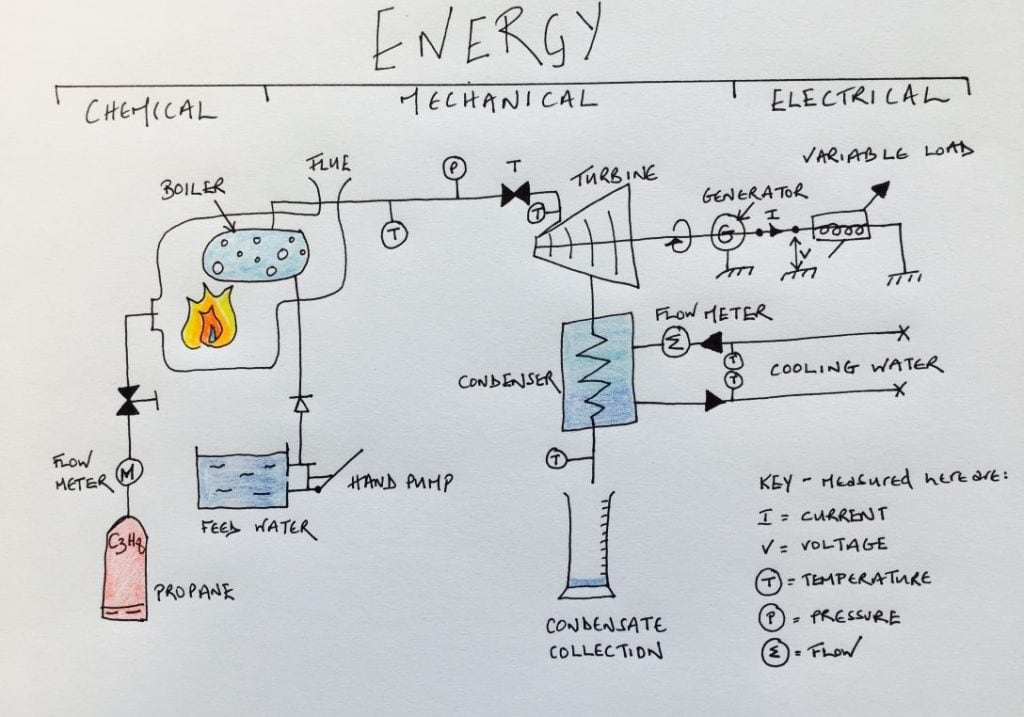 ENERGY
CHEMICAL
MECHANICAL
ELECTRICAL
VARIABLE LOAD
FLUE
P
T
TURBINE
BOILER
GENERATOR
I
T
T
G
V
FLOW METER
Σ
T
T
COOLING WATER
CONDENSER
FLOW
METER
M
HAND PUMP
T
KEY - MEASURED HERE ARE:
I = CURRENT
FEED WATER
C3H8
V = VOLTAGE
T = TEMPERATURE
PROPANE
P = PRESSURE
CONDENSATE
COLLECTION
Σ = FLOW